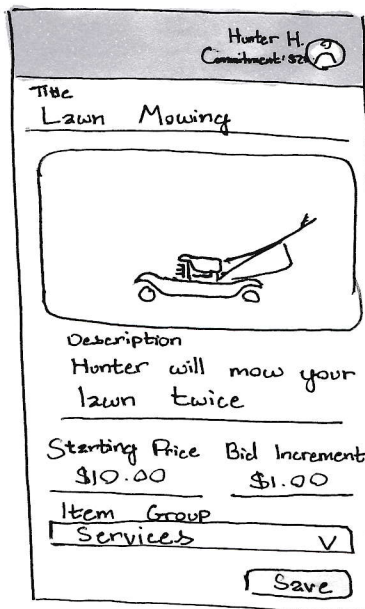 Hunter H.
Commitment: $20
Title
Lawn Mowing
Description
Hunter will mow your
lawn twice
Starting Price Bid Increment
$10.00 $1.00
Item Group
Services V
Save